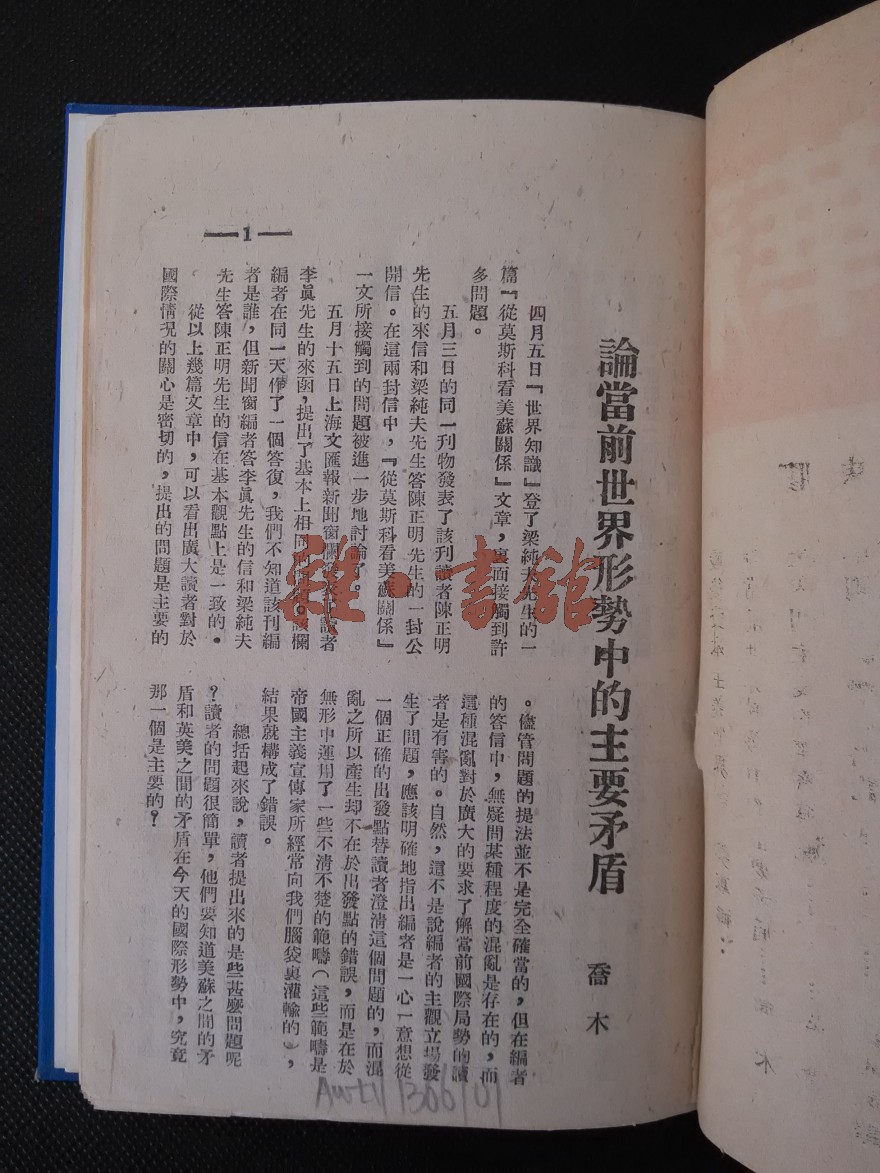 論當前世界形勢中的主要矛盾
喬木
四月五日『世界知識』登了梁純夫先生的一
篇『從莫斯科看美蘇關係』文章，裏面接觸到許
多問題。
五月三日的同一刊物發表了該刊讀者陳正明
先生的來信和梁純夫先生答陳正明先生的一封公
開信。在這兩封信中，『從莫斯科看美蘇關係』
一文所接觸到的問題被進一步地討論了。
五月十五日上海文匯報新聞窗欄
讀者
李眞先生的來函，提出了基本上相同
該欄
編者在同一天作了一個答復，我們不知道該刊編
者是誰，但新聞窗編者答李眞先生的信和梁純夫
先生答陳正明先生的信在基本觀點上是一致的。
從以上幾篇文章中，可以看出廣大讀者對於
國際情況的關心是密切的，提出的問題是主要的
。儘管問題的提法並不是完全確當的，但在編者
的答信中，無疑問某種程度的混亂是存在的，而
這種混亂對於廣大的要求了解當前國際局勢的讀
者是有害的。自然，這不是說編者的主觀立場發
生了問題，應該明確地指出編者是一心一意想從
一個正確的出發點替讀者澄清這個問題的，而混
亂之所以產生却不在於出發點的錯誤，而是在於
無形中運用了一些不清不楚的範疇（這些範疇是
帝國主義宣傳家所經常向我們腦袋裏灌輸的），
結果就構成了錯誤。
總括起來說，讀者提出來的是些甚麼問題呢
？讀者的問題很簡單，他們要知道美蘇之間的矛
盾和英美之間的矛盾在今天的國際形勢中，究竟
那一個是主要的？
—1—
雜·書館